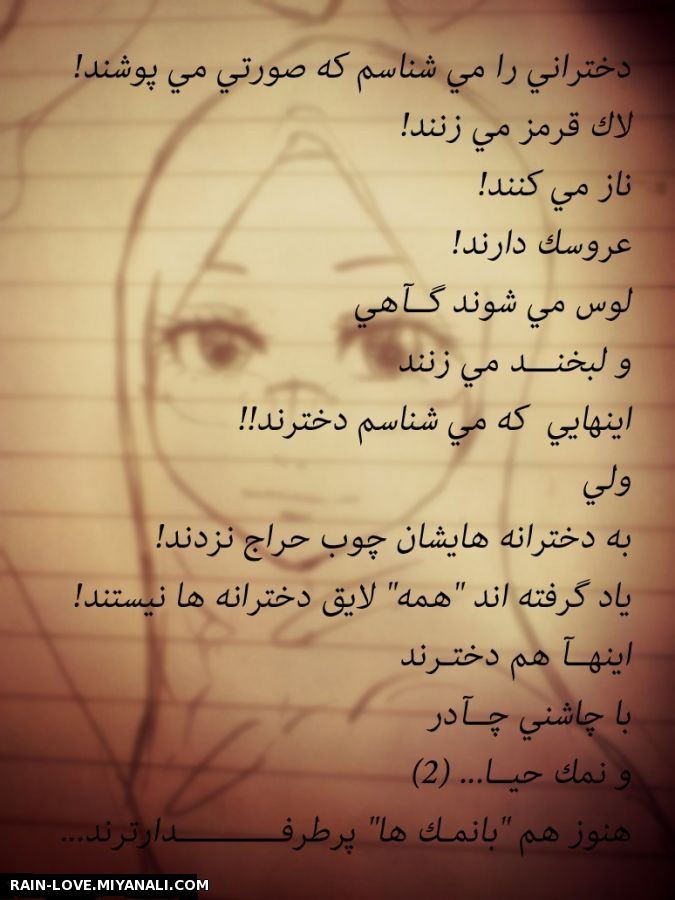 دختراني را مي شناسم كه صورتي مي پوشند!
لاك قرمز مي زنند!
ناز مي كنند!
عروسك دارند!
لوس مي شوند گــآهي
و لبخنــــد مي زنند
اينهايي كه مي شناسم دخترند!!
ولي
به دخترانه هايشان چوب حراج نزدند!
ياد گرفته اند "همه" لايق دخترانه ها نيستند!
اينهــآ هم دختـرند
با چاشني چــآدر
و نمك حيــا... (2)
هنوز هم "بانمـك ها" پرطرفـــــــــــدارترند...
RAIN-LOVE.MIYANALI.COM